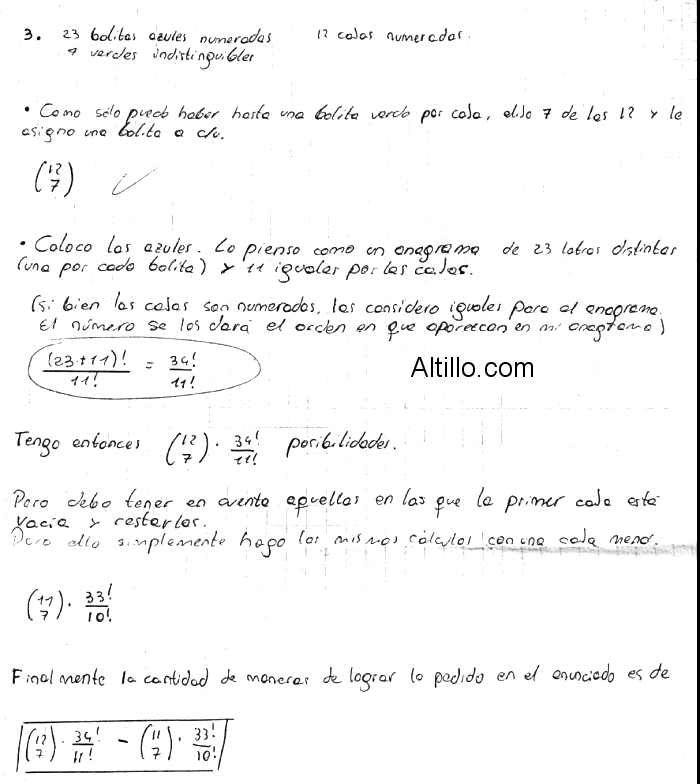 3. 23 bolitas azules numeradas 12 cajas numeradas.
7 verdes indistinguibles
• Como sólo puede haber hasta una bolita verde por caja, elijo 7 de las 12 y le
asigno una bolita a c/u.
(12 7) ✓
• Coloco las azules. Lo pienso como un anagrama de 23 letras distintas
(una por cada bolita) y 11 iguales por las cajas.
(si bien las cajas son numeradas, las considero iguales para el anagrama.
El número se los dará el orden en que aparezcan en mi anagrama)
(23+11)! / 11! = 34! / 11!
Altillo.com
Tengo entonces (12 7) · 34! / 11! posibilidades.
Pero debo tener en cuenta aquellas en las que la primer caja está
vacía y restarlas.
Para ello simplemente hago los mismos cálculos con una caja menos.
(11 7) · 33! / 10!
Finalmente la cantidad de maneras de lograr lo pedido en el enunciado es de
(12 7) · 34! / 11! - (11 7) · 33! / 10!